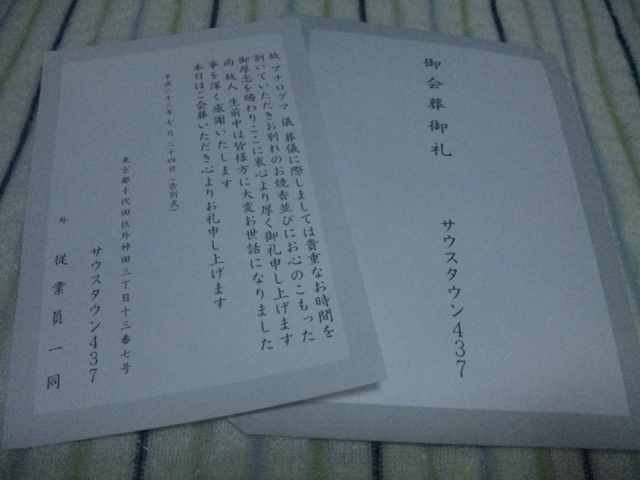 御会葬御礼
サウスタウン437
故 アナログマ 儀 葬儀に際しましては貴重なお時間を
割いていただきお別れのお焼香並びにお心のこもった
御厚志を賜わりここに衷心より厚く御礼申し上げます
尚 故人 生前中は皆様方に大変お世話になりました
事を深く感謝いたします
本日はご会葬いただき心よりお礼申し上げます
平成二十三年七月二十四日(告別式)
東京都千代田区外神田三丁目十三番七号
サウスタウン437
外 従業員一同